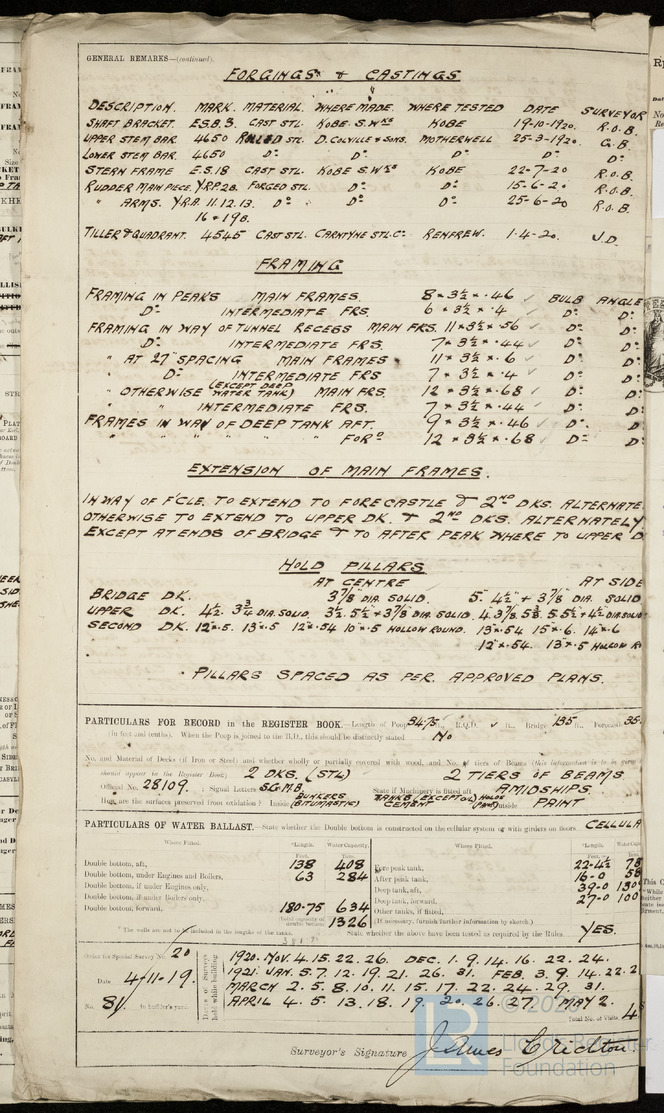 GENERAL REMARKS—(continued).
FORGINGS & CASTINGS
DESCRIPTION. MARK. MATERIAL. WHERE MADE. WHERE TESTED DATE SURVEYOR
SHAFT BRACKET. E.S.B.3. CAST STL. KOBE S. WKS KOBE 19-10-1920. R.O.B.
UPPER STEM BAR. 4650 ROLLED STL. D. COLVILLE & SONS. MOTHERWELL 25-3-1920. G.B.
LOWER STEM BAR. 4650 Do. Do. Do. Do. Do.
STERN FRAME E.S.18 CAST STL. KOBE S. WKS KOBE 22-7-20 R.O.B.
RUDDER MAIN PIECE. Y.R.P.28. FORGED STL. Do. Do. 15-6-20 R.O.B.
" ARMS. Y.R.A. 11.12.13. Do. Do. Do. 25-6-20 R.O.B.
16 & 19B.
TILLER & QUADRANT. 4545 CAST STL. CARNTYNE STL. Co. RENFREW. 1-4-20. J.D.
FRAMING
FRAMING IN PEAKS MAIN FRAMES. 8 × 3½ × .46 ✓ BULB ANGLE
Do. INTERMEDIATE FRS. 6 × 3½ × .4 ✓ Do. Do.
FRAMING IN WAY OF TUNNEL RECESS MAIN FRS. 11 × 3½ × .56 ✓ Do. Do.
Do. INTERMEDIATE FRS. 7 × 3½ × .44 ✓ Do. Do.
" AT 27" SPACING MAIN FRAMES 11 × 3½ × .6 ✓ Do. Do.
" Do. INTERMEDIATE FRS 7 × 3½ × .4 ✓ Do. Do.
" OTHERWISE (EXCEPT DEEP WATER TANK) MAIN FRS. 12 × 3½ × .68 ✓ Do. Do.
" " INTERMEDIATE FRS. 7 × 3½ × .44 ✓ Do. Do.
FRAMES IN WAY OF DEEP TANK AFT. 9 × 3½ × .46 ✓ Do. Do.
" " " " " FORD 12 × 3½ × .68 ✓ Do. Do.
EXTENSION OF MAIN FRAMES.
IN WAY OF F'CLE. TO EXTEND TO FORECASTLE & 2ND DKS. ALTERNATE
OTHERWISE TO EXTEND TO UPPER DK. & 2ND DKS. ALTERNATELY
EXCEPT AT ENDS OF BRIDGE & TO AFTER PEAK WHERE TO UPPER D
HOLD PILLARS
AT CENTRE AT SIDE
BRIDGE DK. 3⅞ DIA. SOLID. 5. 4½ & 3⅞ DIA. SOLID
UPPER DK. 4½. 3¾ DIA. SOLID. 3½. 5½ & 3⅞ DIA. SOLID 4. 3⅞. 5⅜. 5.5½ & 4½ DIA SOLID
SECOND DK. 12 × .5. 13 × .5 12 × .54 10 × .5 HOLLOW ROUND. 13 × .54 15 × .6. 14 × .6
12 × .54. 13 × .5 HOLLOW R
PILLARS SPACED AS PER. APPROVED PLANS.
PARTICULARS FOR RECORD in the REGISTER BOOK.—Length of Poop 34.75 ft., R.Q.D. ✓ ft., Bridge 135 ft., Forecast 35
(in feet and tenths). When the Poop is joined to the B.D., this should be distinctly stated No
No. and Material of Decks (if Iron or Steel) and whether wholly or partially covered with wood, and No. of tiers of Beams (this information is to be given
should appear in the Register Book) 2 DKS. (STL) 2 TIERS OF BEAMS
Official No. 28109. : Signal Letters S.G.M.B. State if Machinery is fitted aft AMIDSHIPS.
How are the surfaces preserved from oxidation? Inside BUNKERS (BITUMASTIC) TANKS (EXCEPT OIL) CEMENT HOLDS (PAINT) Outside PAINT
PARTICULARS OF WATER BALLAST.—State whether the Double bottom is constructed on the cellular system or with girders on floors CELLULA
Where Fitted. *Length. Water Capacity. Where Fitted. *Length. Water Capac
Double bottom, aft, 138 408 Fore peak tank, 22-4½ 78
Double bottom, under Engines and Boilers, 63 284 After peak tank, 16-0 58
Double bottom, if under Engines only, Deep tank, aft, 39-0 130
Double bottom, if under Boilers only, Deep tank, forward, 27-0 100
Double bottom, forward, 180.75 634 Other tanks, if fitted,
Total capacity of double bottom 1326 (If necessary, furnish further information by sketch.)
* The wells are not to be included in the lengths of the tanks. State whether the above have been tested as required by the Rules YES.
Order for Special Survey No. 20
Date 4-11-19.
No. 81 in builder's yard.
Dates of Surveys held while building
1920. NOV. 4. 15. 22. 26. DEC. 1. 9. 14. 16. 22. 24.
1921. JAN. 5. 7. 12. 19. 21. 26. 31. FEB. 3. 9. 14. 22. 2
MARCH 2. 5. 8. 10. 11. 15. 17. 22. 24. 29. 31.
APRIL 4. 5. 13. 18. 19. 20. 26. 27. MAY 2.
Total No. of Visits 4
Surveyor's Signature James Crichton
LR
Foundation